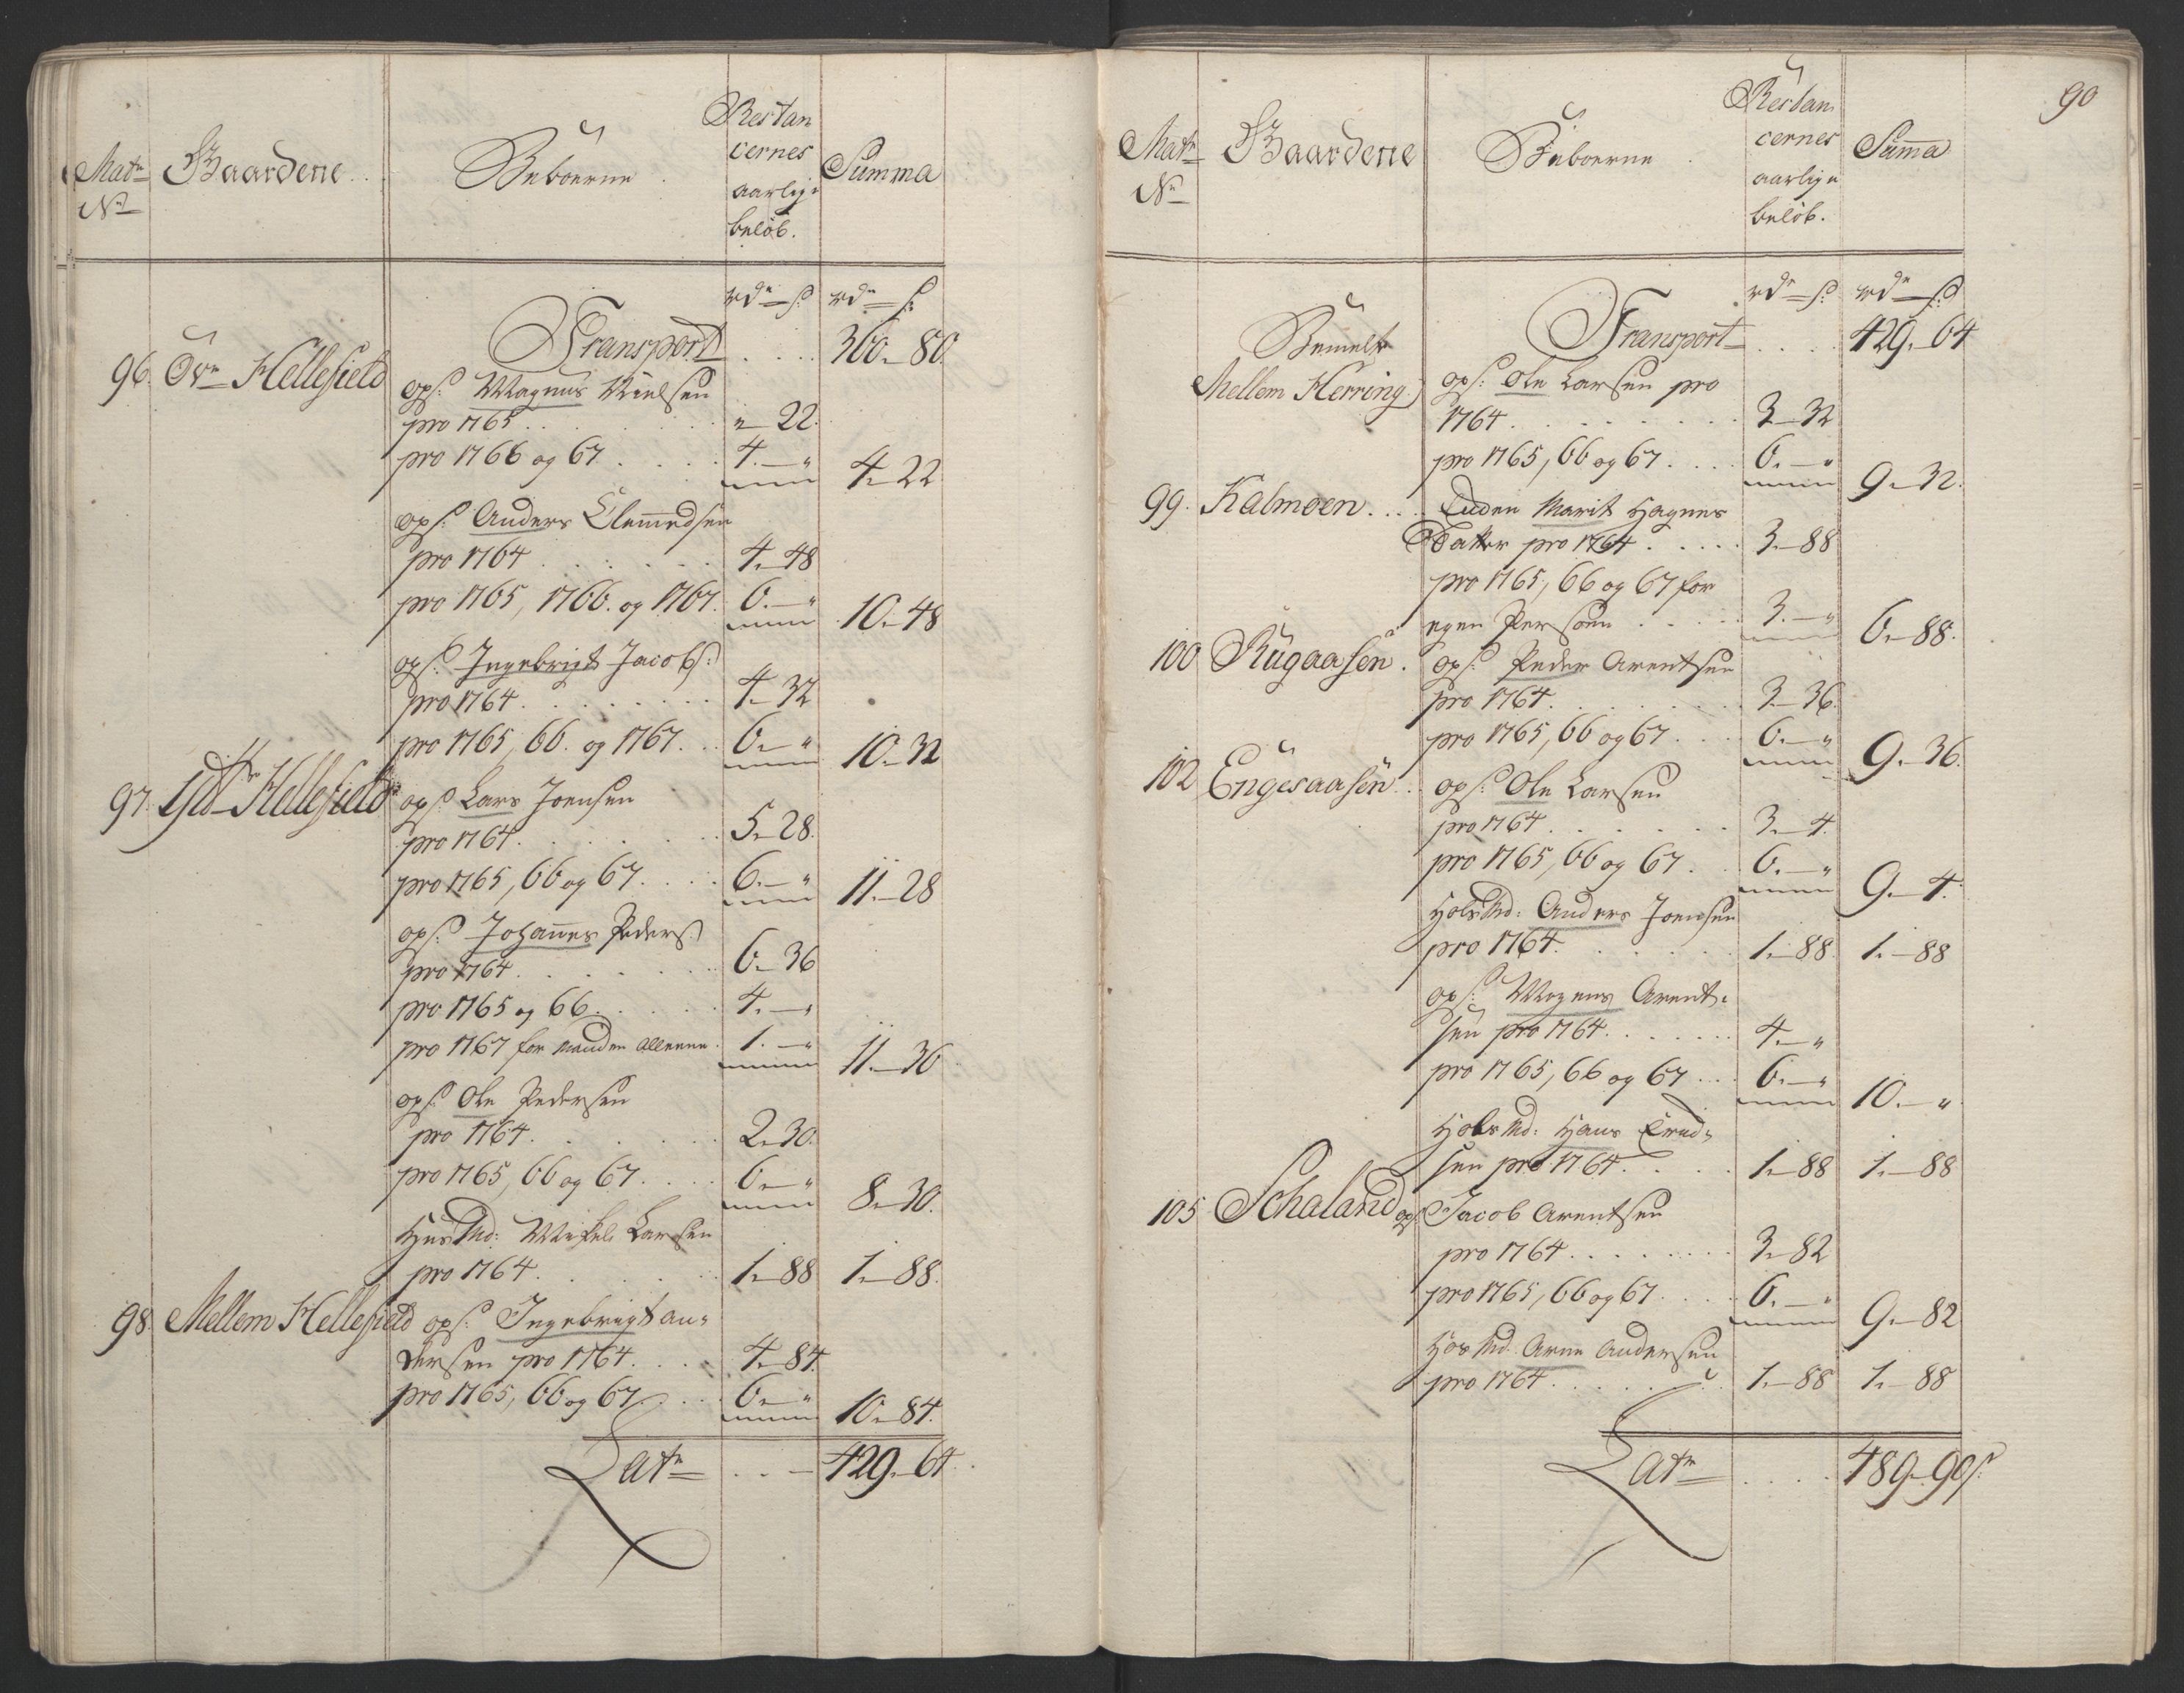 Matr
No
Gaardene
Beboerne
Restan
cernes
aarlige
beløb.
Summa
rdr ß: rdr ß:
Transport . . . . 360. 80.
96. Øvre Hellefield
ops: Magnus Nielsen
pro 1765 . . " 22.
pro 1766 og 67 . . . . 4. — " 4. 22
ops: Anders Clemedsen
pro 1764 . . . . . . 4. 48
pro 1765, 1766. og 1767. 6. — " 10. 48
ops: Ingebrigt Jacobs:
pro 1764 . . . . . . 4. 32
pro 1765, 66. og 1767. . . 6. — " 10. 32
97. Ydr Hellefield ops: Lars Joensen
pro 1764. . . . . . . 5. 28.
pro 1765, 66 og 67. . . . . 6. — " 11. 28
ops: Johannes Peders:
pro 1764 . . . . . . 6. 36
pro 1765 og 66. . . . . . 4. — "
pro 1767 for Manden allene. 1. — " 11. 36
ops: Ole Pedersen
pro 1764. . . . . . . 2. 30.
pro 1765, 66 og 67. . . . . 6. — " 8. 30.
Husmd: Mikkel Larsen
pro 1764. . . . . 1. 88 1. 88.
98. Mellem Hellefield ops: Ingebrigt An-
dersen pro 1764. . . . . 4. 84.
pro 1765, 66 og 67 . . . . 6. — " 10. 84.
Latr . . — 429. 64.
90
Matr
No
Gaardene
Beboerne
Restan
cernes
aarlige
beløb.
Summa
rdr ß: rdr ß:
Transport . . . . 429. 64
Bemelte
Mellem Herring
ops: Ole Larsen pro
1764. . . . . . . . . 3. 32
pro 1765, 66 og 67. . . . 6. — " 9. 32.
99. Kalmoen. . . . Enken Marit Hagnes
Datter pro 1764. . . . . 3. 88
pro 1765, 66 og 67 for
egen Persohn . . . . 3. — " 6. 88.
100 Rugaasen . ops: Peder Arentsen
pro 1764. . . . . . . . 3. 36.
pro 1765, 66 og 67. . . . 6. — " 9. 36.
102 Engesaasen . . ops: Ole Larsen
pro 1764. . . . . . . 3. 4.
pro 1765, 66 og 67. . 6. — " 9. 4.
Husmd: Anders Joensen
pro 1764. . . . . . . 1. 88. 1. 88
ops: Mogens Arent-
sen pro 1764. . . . . . . 4. — "
pro 1765, 66 og 67. . . 6. — " 10. — "
Husmd: Hans
sen pro 1764. . . . . 1. 88 1. 88
105 Schaland ops: Jacob Arentsen
pro 1764. . . . . . . . 3. 82
pro 1765, 66 og 67. . . . . 6. — " 9. 82
Husmd Arne Andersen
pro 1764. . . . . . . 1. 88 1. 88
Latr . . . . 489. 90 ß: